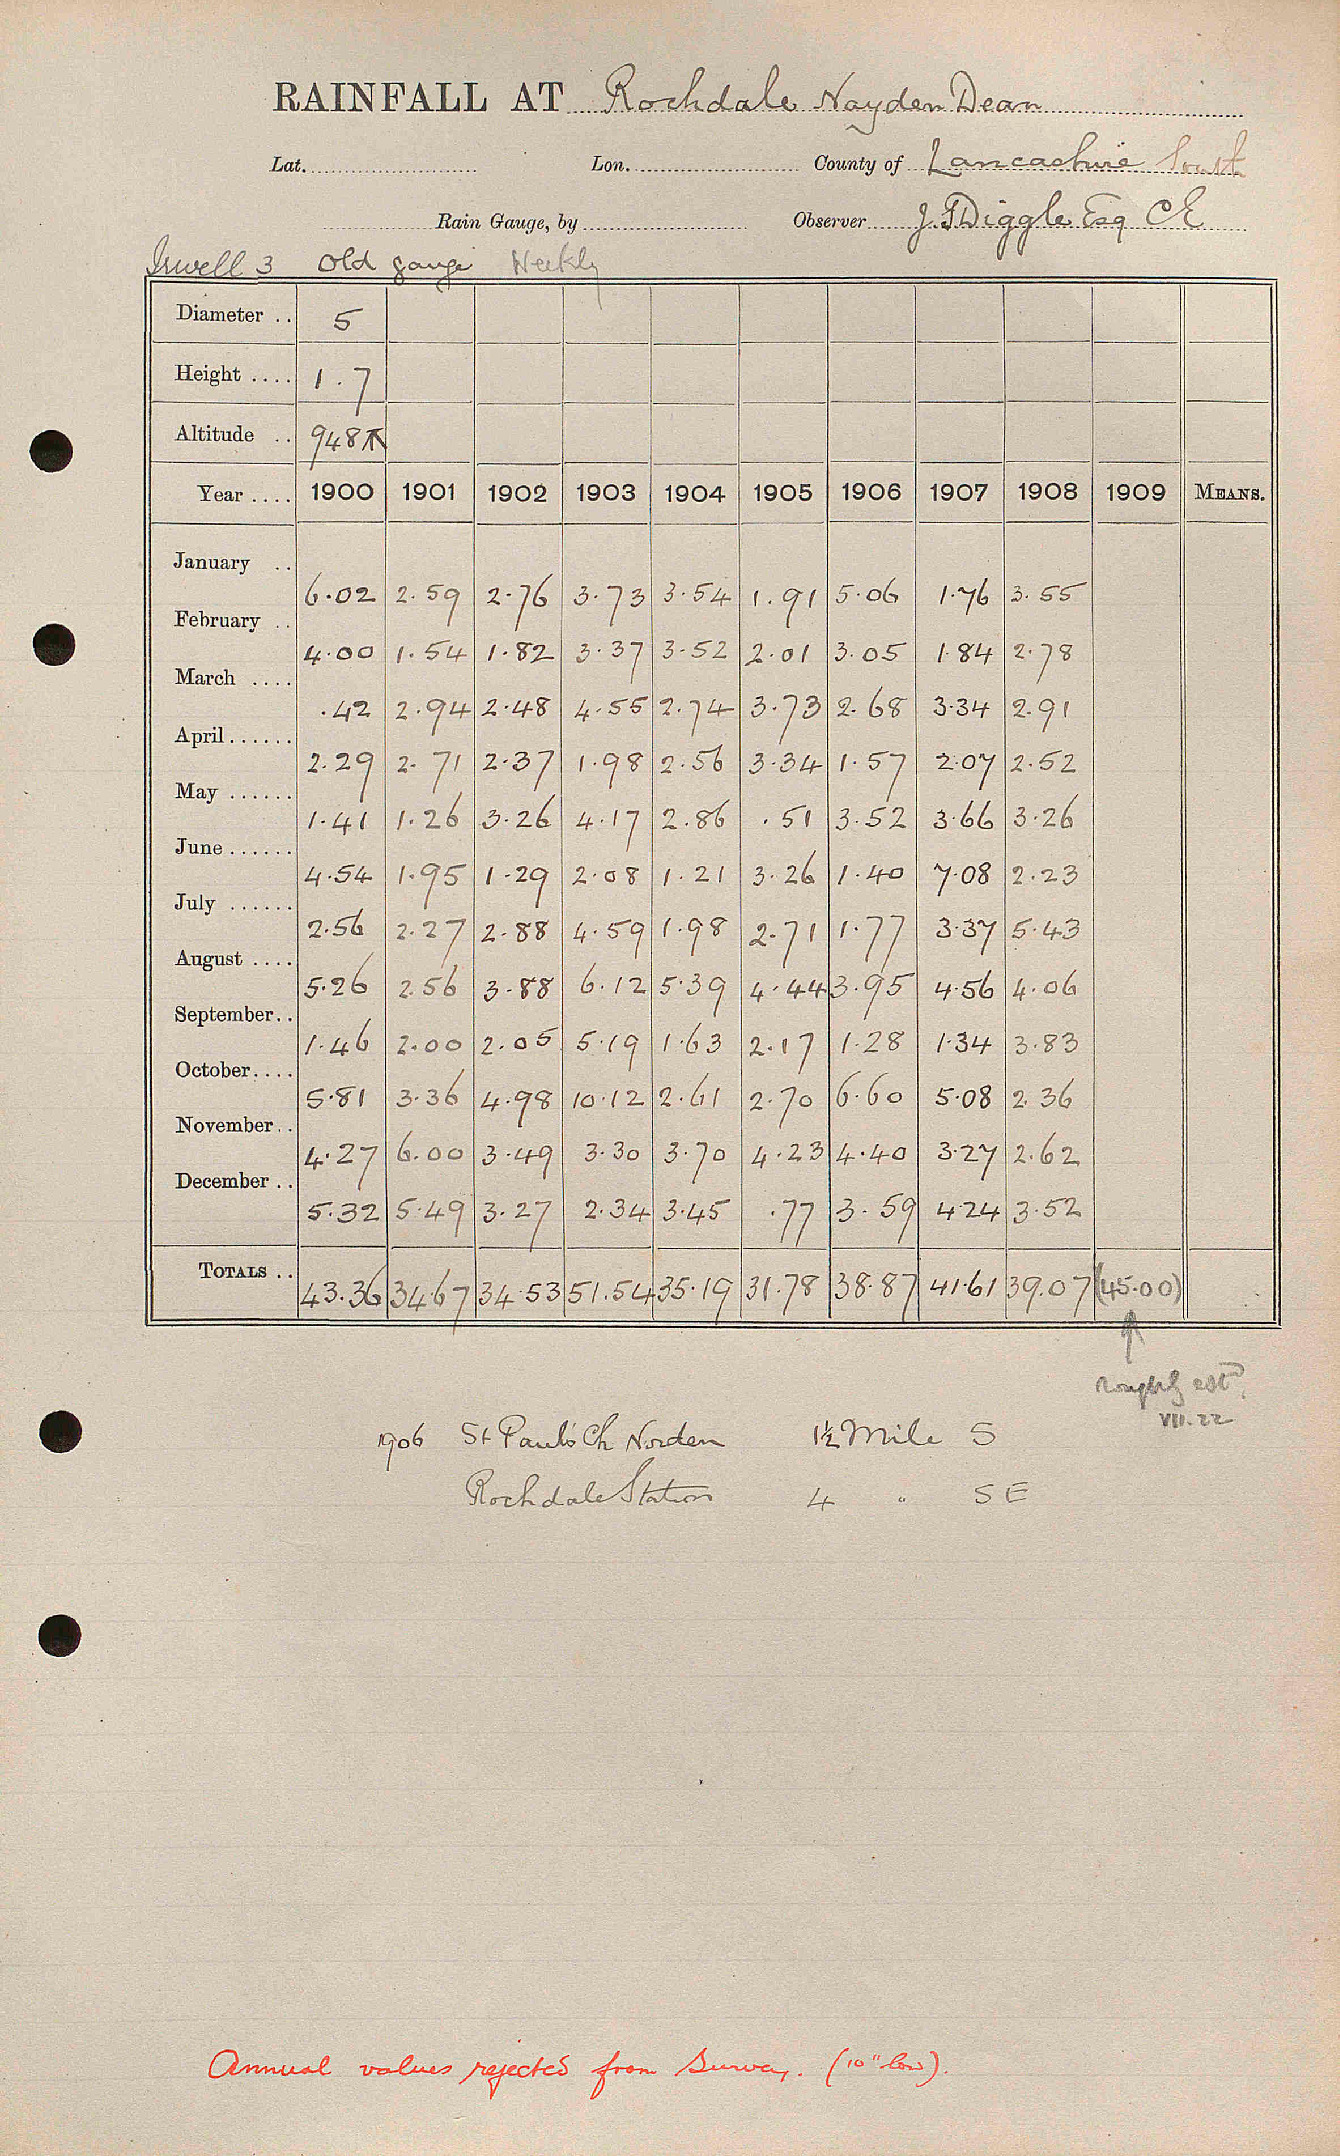 RAINFALL AT Rochdale Nayden Dean
Lat. Lon. County of Lancashire South
Rain Gauge, by Observer J. T Diggle Esq CE
Irwell 3 Old gauge Weekly
Diameter .. 5
Height .... 1.7
Altitude .. 948
Year .... 1900 1901 1902 1903 1904 1905 1906 1907 1908 1909 MEANS.
January .. 6.02 2.59 2.76 3.73 3.54 1.91 5.06 1.76 3.55
February .. 4.00 1.54 1.82 3.37 3.52 2.01 3.05 1.84 2.78
March .... .42 2.94 2.48 4.55 2.74 3.73 2.68 3.34 2.91
April...... 2.29 2.71 2.37 1.98 2.56 3.34 1.57 2.07 2.52
May ...... 1.41 1.26 3.26 4.17 2.86 .51 3.52 3.66 3.26
June...... 4.54 1.95 1.29 2.08 1.21 3.26 1.40 7.08 2.23
July ...... 2.56 2.27 2.88 4.59 1.98 2.71 1.77 3.37 5.43
August .... 5.26 2.56 3.88 6.12 5.39 4.44 3.95 4.56 4.06
September.. 1.46 2.00 2.05 5.19 1.63 2.17 1.28 1.34 3.83
October.... 5.81 3.36 4.98 10.12 2.61 2.70 6.60 5.08 2.36
November.. 4.27 6.00 3.49 3.30 3.70 4.23 4.40 3.27 2.62
December .. 5.32 5.49 3.27 2.34 3.45 .77 3.59 4.24 3.52
TOTALS .. 43.36 34.67 34.53 51.54 35.19 31.78 38.87 41.61 39.07 (45.00)
roughly estd.
VII.22
1906 St Paul's Ch Norden 1½ Mile S
Rochdale Station 4 " SE
Annual values rejected from Survey. (10" low).